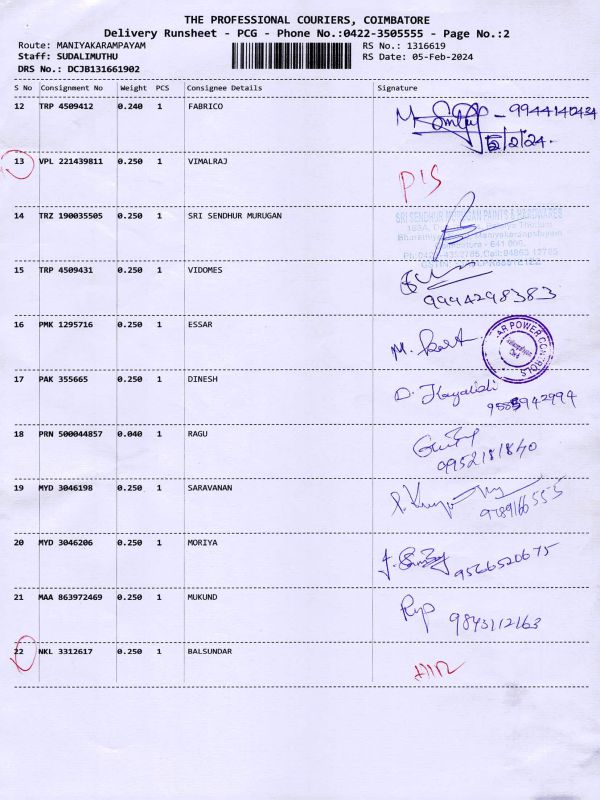 THE PROFESSIONAL COURIERS, COIMBATORE
Delivery Runsheet - PCG - Phone No.:0422-3505555 - Page No.:2
Route: MANIYAKARAMPAYAM RS No.: 1316619
Staff: SUDALIMUTHU RS Date: 05-Feb-2024
DRS No.: DCJB131661902
S No Consignment No Weight PCS Consignee Details Signature
12 TRP 4509412 0.240 1 FABRICO 9944140434
5/2/24.
13 VPL 221439811 0.250 1 VIMALRAJ P1S
14 TRZ 190035505 0.250 1 SRI SENDHUR MURUGAN
SRI SENDHUR MURUGAN PAINTS & HARDWARES
15 TRP 4509431 0.250 1 VIDOMES
9994298383
16 PMK 1295716 0.250 1 ESSAR M.
POWER CONTROLS
17 PAK 355665 0.250 1 DINESH D.
18 PRN 500044857 0.040 1 RAGU
9952181840
19 MYD 3046198 0.250 1 SARAVANAN
9789166555
20 MYD 3046206 0.250 1 MORIYA 9566520675
21 MAA 863972469 0.250 1 MUKUND 9843112163
22 NKL 3312617 0.250 1 BALSUNDAR